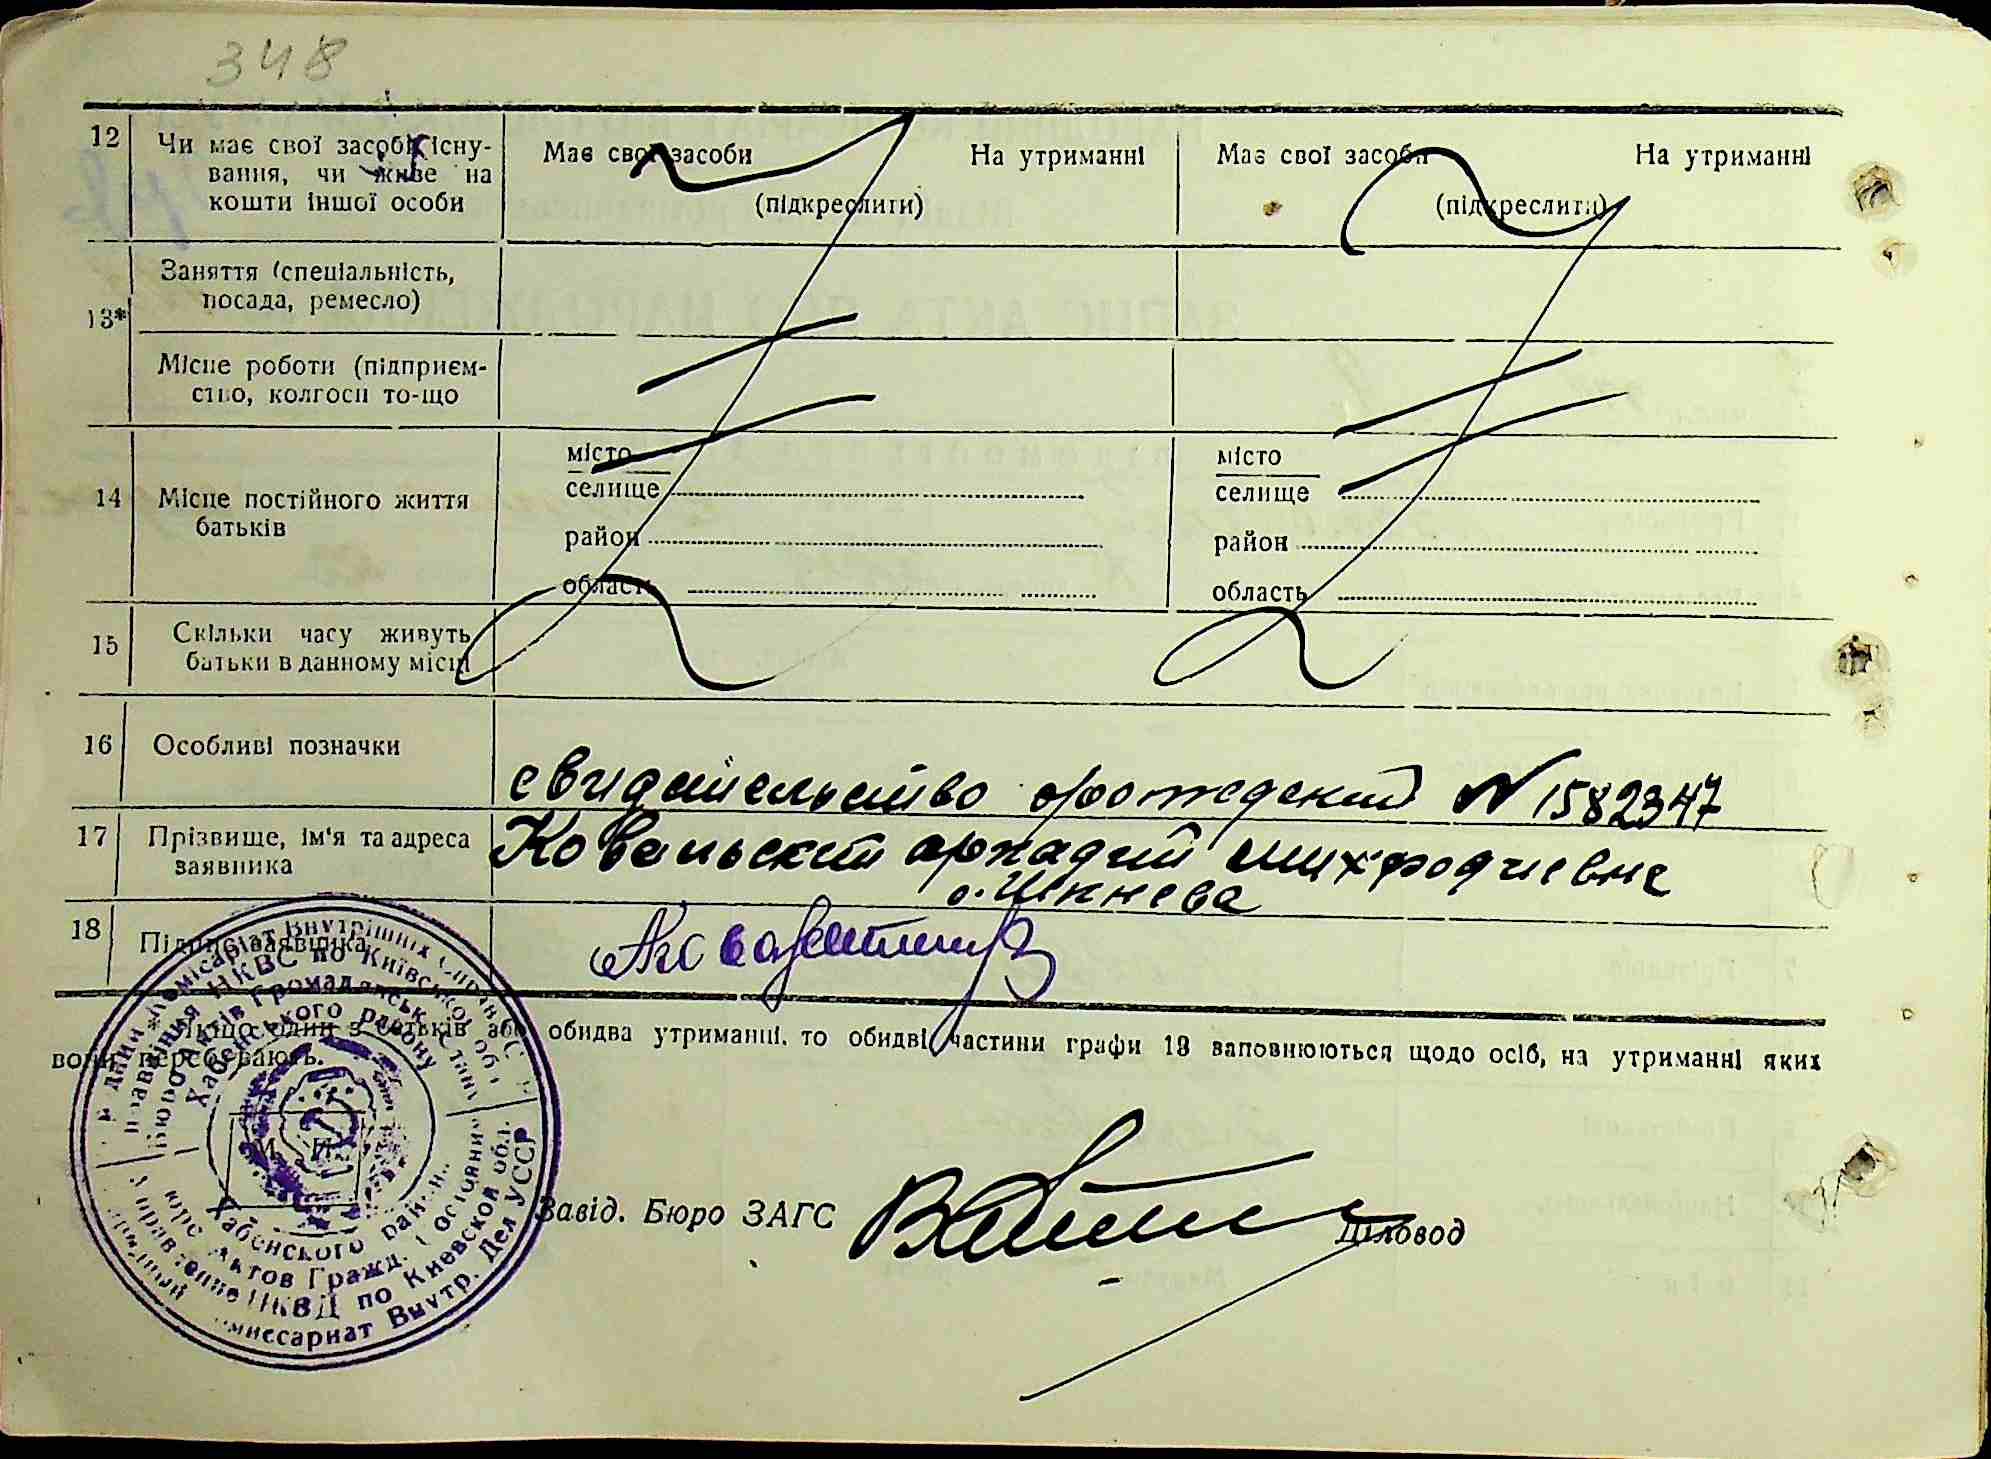 348
12 Чи має свої засоби існу- Має свої засоби На утриманні Має свої засоби На утриманні
вання, чи живе на
кошти іншої особи (підкреслити) (підкреслити)
Заняття (спеціальність,
посада, ремесло)
13*
Місце роботи (підприєм-
ство, колгосп то-що
місто місто
14 Місце постійного життя селище селище
батьків район район
область область
15 Скільки часу живуть
батьки в данному місці
16 Особливі позначки
свидетельство № 1582347
17 Прізвище, ім'я та адреса Ковальский
заявника
18 Підпис заявника
* Якщо один з батьків або обидва утриманці, то обидві частини графи 13 заповнюються щодо осіб, на утриманні яких
вони перебувають.
М. П.
Завід. Бюро ЗАГС Діловод
Народний Комісаріат Внутрішніх Справ УССР
Управління НКВС по Київській обл.
Бюро Актів Громадянськ. Стану
Хабенського району
Хабенского район.
Бюро Актов Гражд. Состояния
Управление НКВД по Киевской обл.
Народный Комиссариат Внутр. Дел УССР